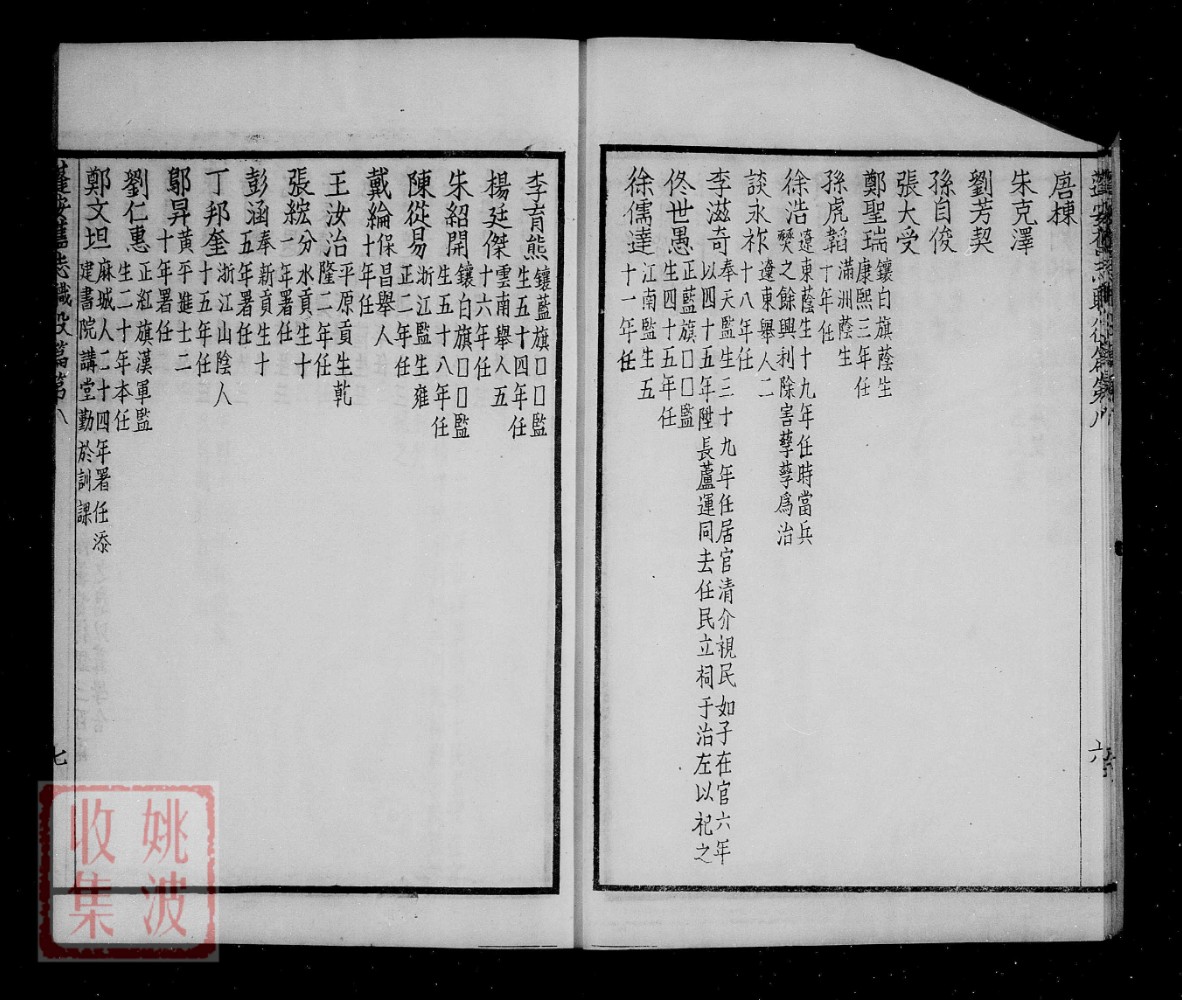 唐棟
朱克澤
劉芳契
孫自俊
張大受
鄭聖瑞 鑲白旗蔭生
康熙三年任
孫虎韜 滿洲蔭生
十年任
徐浩 遼東蔭生十九年任時當兵
燹之餘興利除害孳孳爲治
談永祚 遼東舉人二
十八年任
李滋奇 奉天監生三十九年任居官清介視民如子在官六年
以四十五年陞長蘆運同去任民立祠于治左以祀之
佟世愚 正藍旗囗囗監
生四十五年任
徐儒達 江南監生五
十一年任
六
李育熊 鑲藍旗囗囗監
生五十四年任
楊廷傑 雲南舉人五
十六年任
朱紹開 鑲白旗囗囗監
生五十八年任
陳從易 浙江監生雍
正二年任
戴綸 保昌舉人
十年任
王汝治 平原貢生乾
隆二年任
張綋 分水貢生十
一年署任
彭涵 奉新貢生十
五年署任
丁邦奎 浙江山陰人
十五年任
鄔昇 黃平進士二
十年署任
劉仁惠 正紅旗漢軍監
生二十年本任
鄭文坦 麻城人二十四年署任添
建書院講堂勤於訓課
安舊志職役篇第八
七
姚波
收集